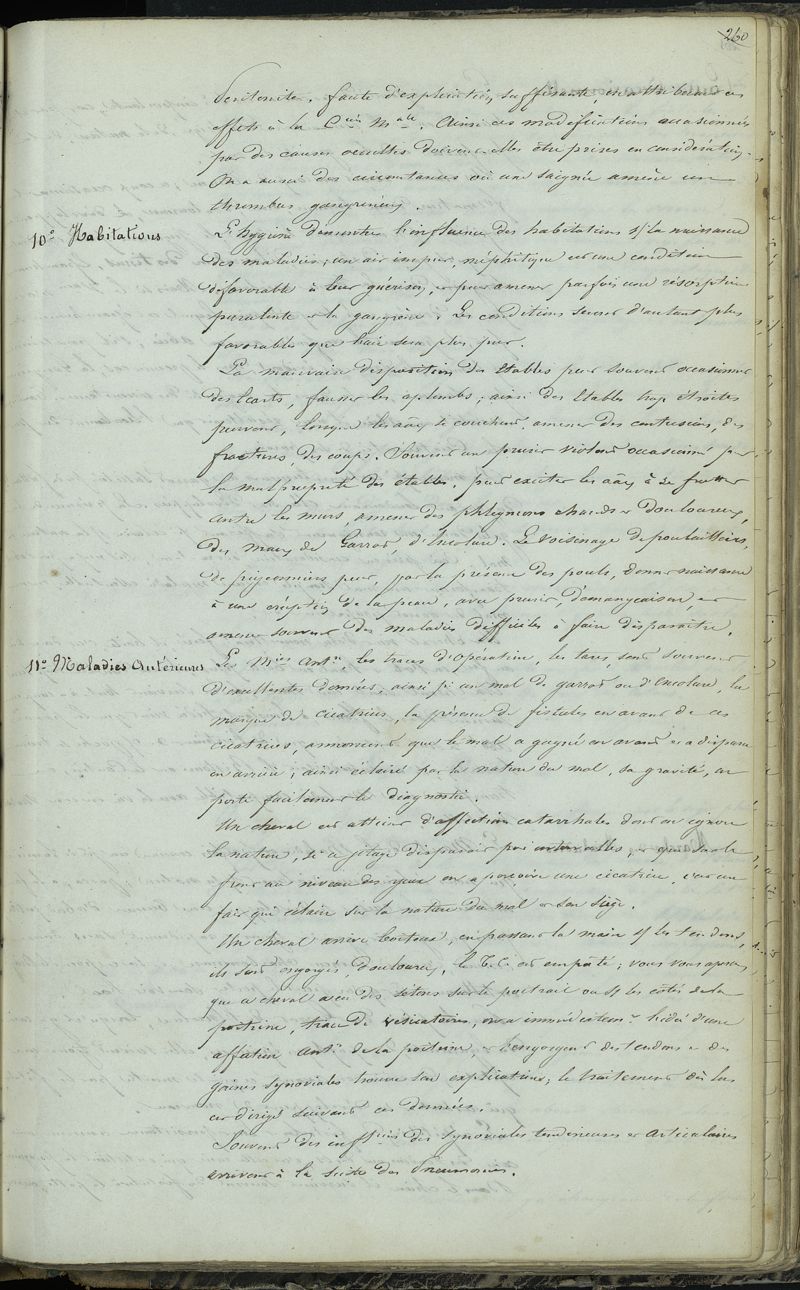 260
Péritonite. faute d'explication suffisante, on attribue ces
effets à la C^on M^ale. Ainsi ces modifications occasionnées
par des causes occultes doivent-elles être prises en considération.
On a aussi des circonstances où une saignée amène un
thrombus gangreneux.
10° Habitations
L'hygiène démontre l'influence des habitations s/ la naissance
des maladies; un air impur, méphitique est une condition
défavorable à leur guérison, et peut amener parfois une résorption
purulente et la gangrène. Les conditions seront d'autant plus
favorables que l'air sera plus pur.
La mauvaise disposition des Etables peut souvent occasionner
des écarts, fausser les aplombs; ainsi des Etables trop étroites
peuvent, lorsque les aûx se couchent, amener des contusions, des
fractures, des coups. Souvent un prurit violent occasionné par
la malpropreté des étables, peut exciter les aûx à se frotter
contre les murs, amener des phlegmons chauds et douloureux,
des maux de Garrot, d'Encolure. Le voisinage de poulaillers,
de pigeonniers peut, par la présence des pouls, donner naissance
à une éruption de la peau, avec prurit, démangeaison, et
amener souvent des maladies difficiles à faire disparaître.
11° Maladies Antérieures
Les M^ies ant^res, les traces d'opération, les tares, sont souvent
d'excellentes données, ainsi si un mal de garrot ou d'Encolure, la
marque de cicatrices, la présence de fistules en avant de ces
cicatrices, annoncent que le mal a gagné en avant et a disparu
en arrière; ainsi éclairé par la nature du mal, sa gravité, on
porte facilement le diagnostic.
Un cheval est atteint d'affection catarrhale dont on ignore
la nature, si ce jetage disparait par intervalles, et que sur le
front au niveau des yeux on aperçoive une cicatrice, c'est un
fait qui éclaire sur la nature du mal et son siège.
Un cheval arrive boiteux, en passant la main s/ les tendons,
ils sont engorgés, douloureux, le T.C. est empâté; vous vous apercevez
que ce cheval a eu des sétons sur le poitrail ou s/ les côtés de la
poitrine, trace de vésicatoires, on a immédiatem^t l'idée d'une
affection ant^re de la poitrine, et l'engorgem^t des tendons et des
gaines synoviales trouve son explication; le traitement dès lors
est dirigé suivant ces données.
Souvent des inff^ions des synoviales tendineuses et articulaires
arrivent à la suite des Pneumonies.